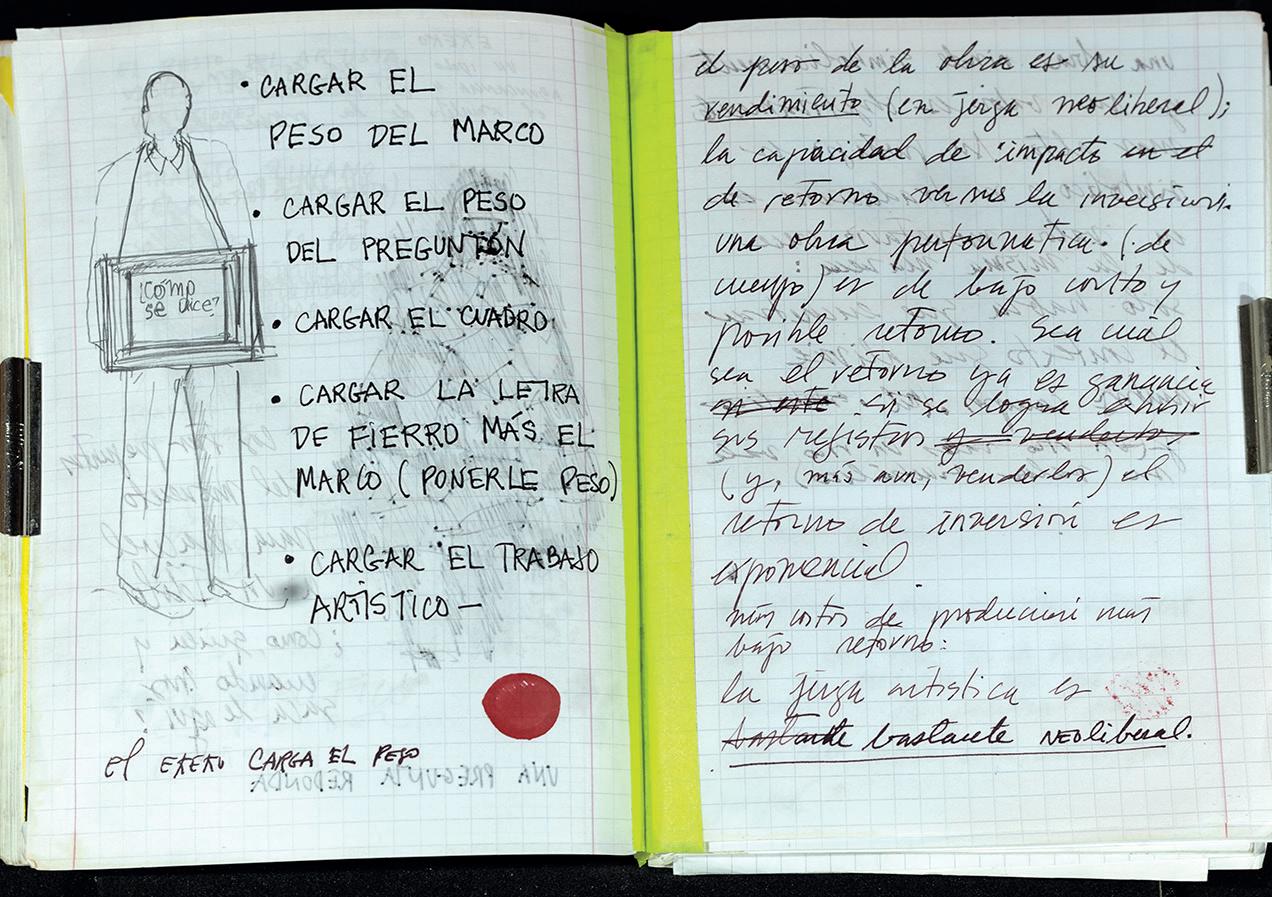 • CARGAR EL
PESO DEL MARCO
• CARGAR EL PESO
DEL PREGUNTÓN
• CARGAR EL CUADRO
• CARGAR LA LETRA
DE FIERRO MÁS EL
MARCO (PONERLE PESO)
• CARGAR EL TRABAJO
ARTÍSTICO —
¿Cómo
se dice?
el EKEKO CARGA EL PESO
UNA PREGUNTA REDONDA
el peso de la obra es su
rendimiento (en jerga neoliberal);
la capacidad de impacto en el
de retorno versus la inversión.
una obra performática. (de
cuerpo) es de bajo costo y
posible retorno. Sea cuál
sea el retorno ya es ganancia
si este si se logra exhibir
sus registros y venderlos
(y, más aun, venderlos) el
retorno de inversión es
exponencial.
más costos de producción más
bajo retorno:
la jerga artística es
bastante bastante NEOliberal.